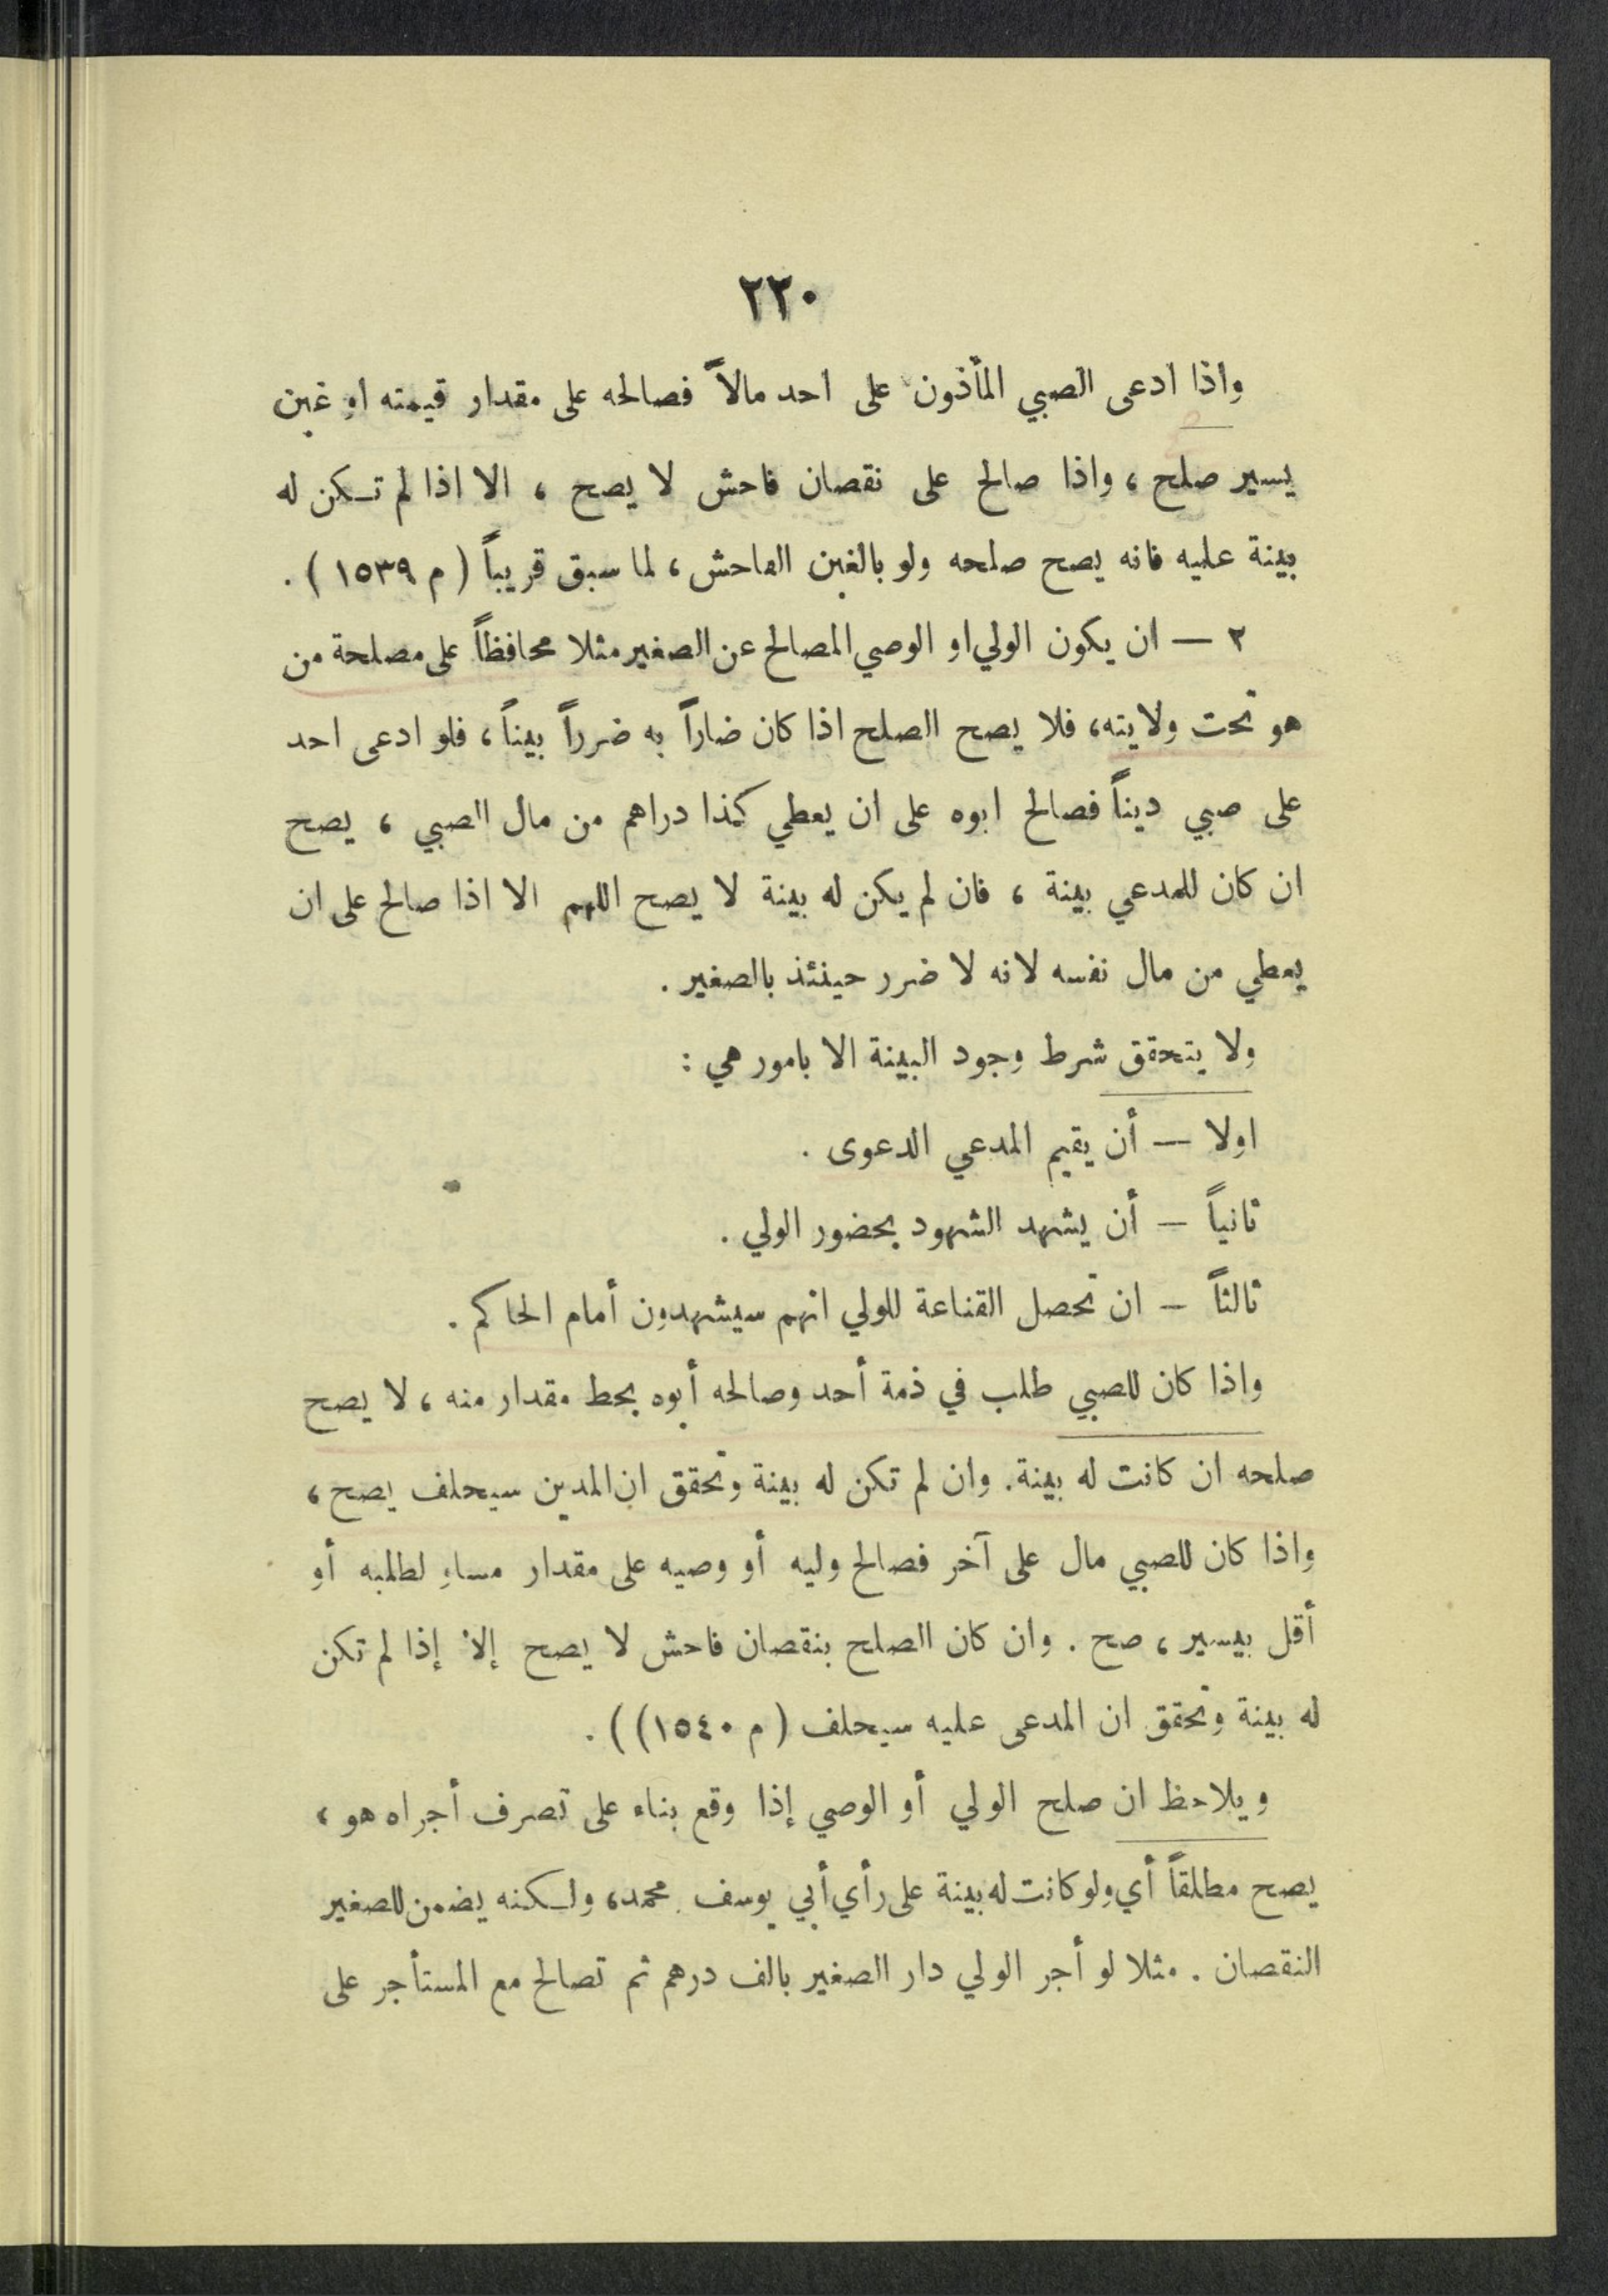 ٢٢٠
واذا ادعى الصبي المأذون على احد مالاً فصالحه على مقدار قيمته او غبن
يسير صلح ، واذا صالح على نقصان فاحش لا يصح ، الا اذا لم تكن له
بينة عليه فانه يصح صلحه ولو بالغبن الفاحش ، لما سبق قريباً ( م ١٥٣٩ ) .
٢ — ان يكون الولي او الوصي المصالح عن الصغير مثلا محافظاً على مصلحة من
هو تحت ولايته ، فلا يصح الصلح اذا كان ضاراً به ضرراً بيناً ، فلو ادعى احد
على صبي ديناً فصالح ابوه على ان يعطي كذا دراهم من مال الصبي ، يصح
ان كان للمدعي بينة ، فان لم يكن له بينة لا يصح اللهم الا اذا صالح على ان
يعطي من مال نفسه لانه لا ضرر حينئذ بالصغير .
ولا يتحقق شرط وجود البينة الا بامور هي :
اولا — أن يقيم المدعي الدعوى .
ثانياً — أن يشهد الشهود بحضور الولي .
ثالثاً — ان تحصل القناعة للولي انهم سيشهدون أمام الحاكم .
واذا كان للصبي طلب في ذمة أحد وصالحه أبوه بحط مقدار منه ، لا يصح
صلحه ان كانت له بينة . وان لم تكن له بينة وتحقق ان المدين سيحلف يصح ،
واذا كان للصبي مال على آخر فصالح وليه أو وصيه على مقدار مساوٍ لطلبه أو
أقل بيسير ، صح . وان كان الصلح بنقصان فاحش لا يصح إلا إذا لم تكن
له بينة وتحقق ان المدعى عليه سيحلف ( م ١٥٤٠ ) ) .
ويلاحظ ان صلح الولي أو الوصي إذا وقع بناء على تصرف أجراه هو ،
يصح مطلقاً أي ولو كانت له بينة على رأي أبي يوسف محمد ، ولكنه يضمن للصغير
النقصان . مثلا لو أجر الولي دار الصغير بالف درهم ثم تصالح مع المستأجر على